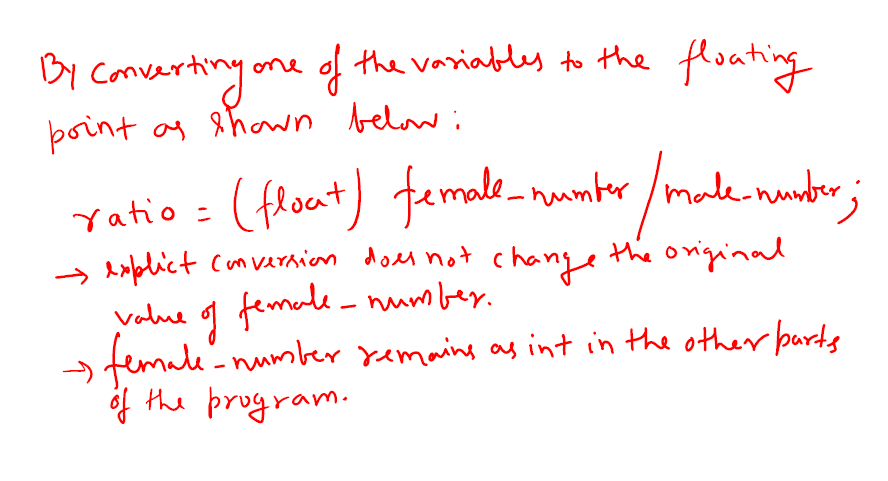 By Converting one of the variables to the floating
point as shown below:
ratio = (float) female_number/male_number;
→ explict conversion does not change the original
value of female_number.
→ female_number remains as int in the other parts
of the program.